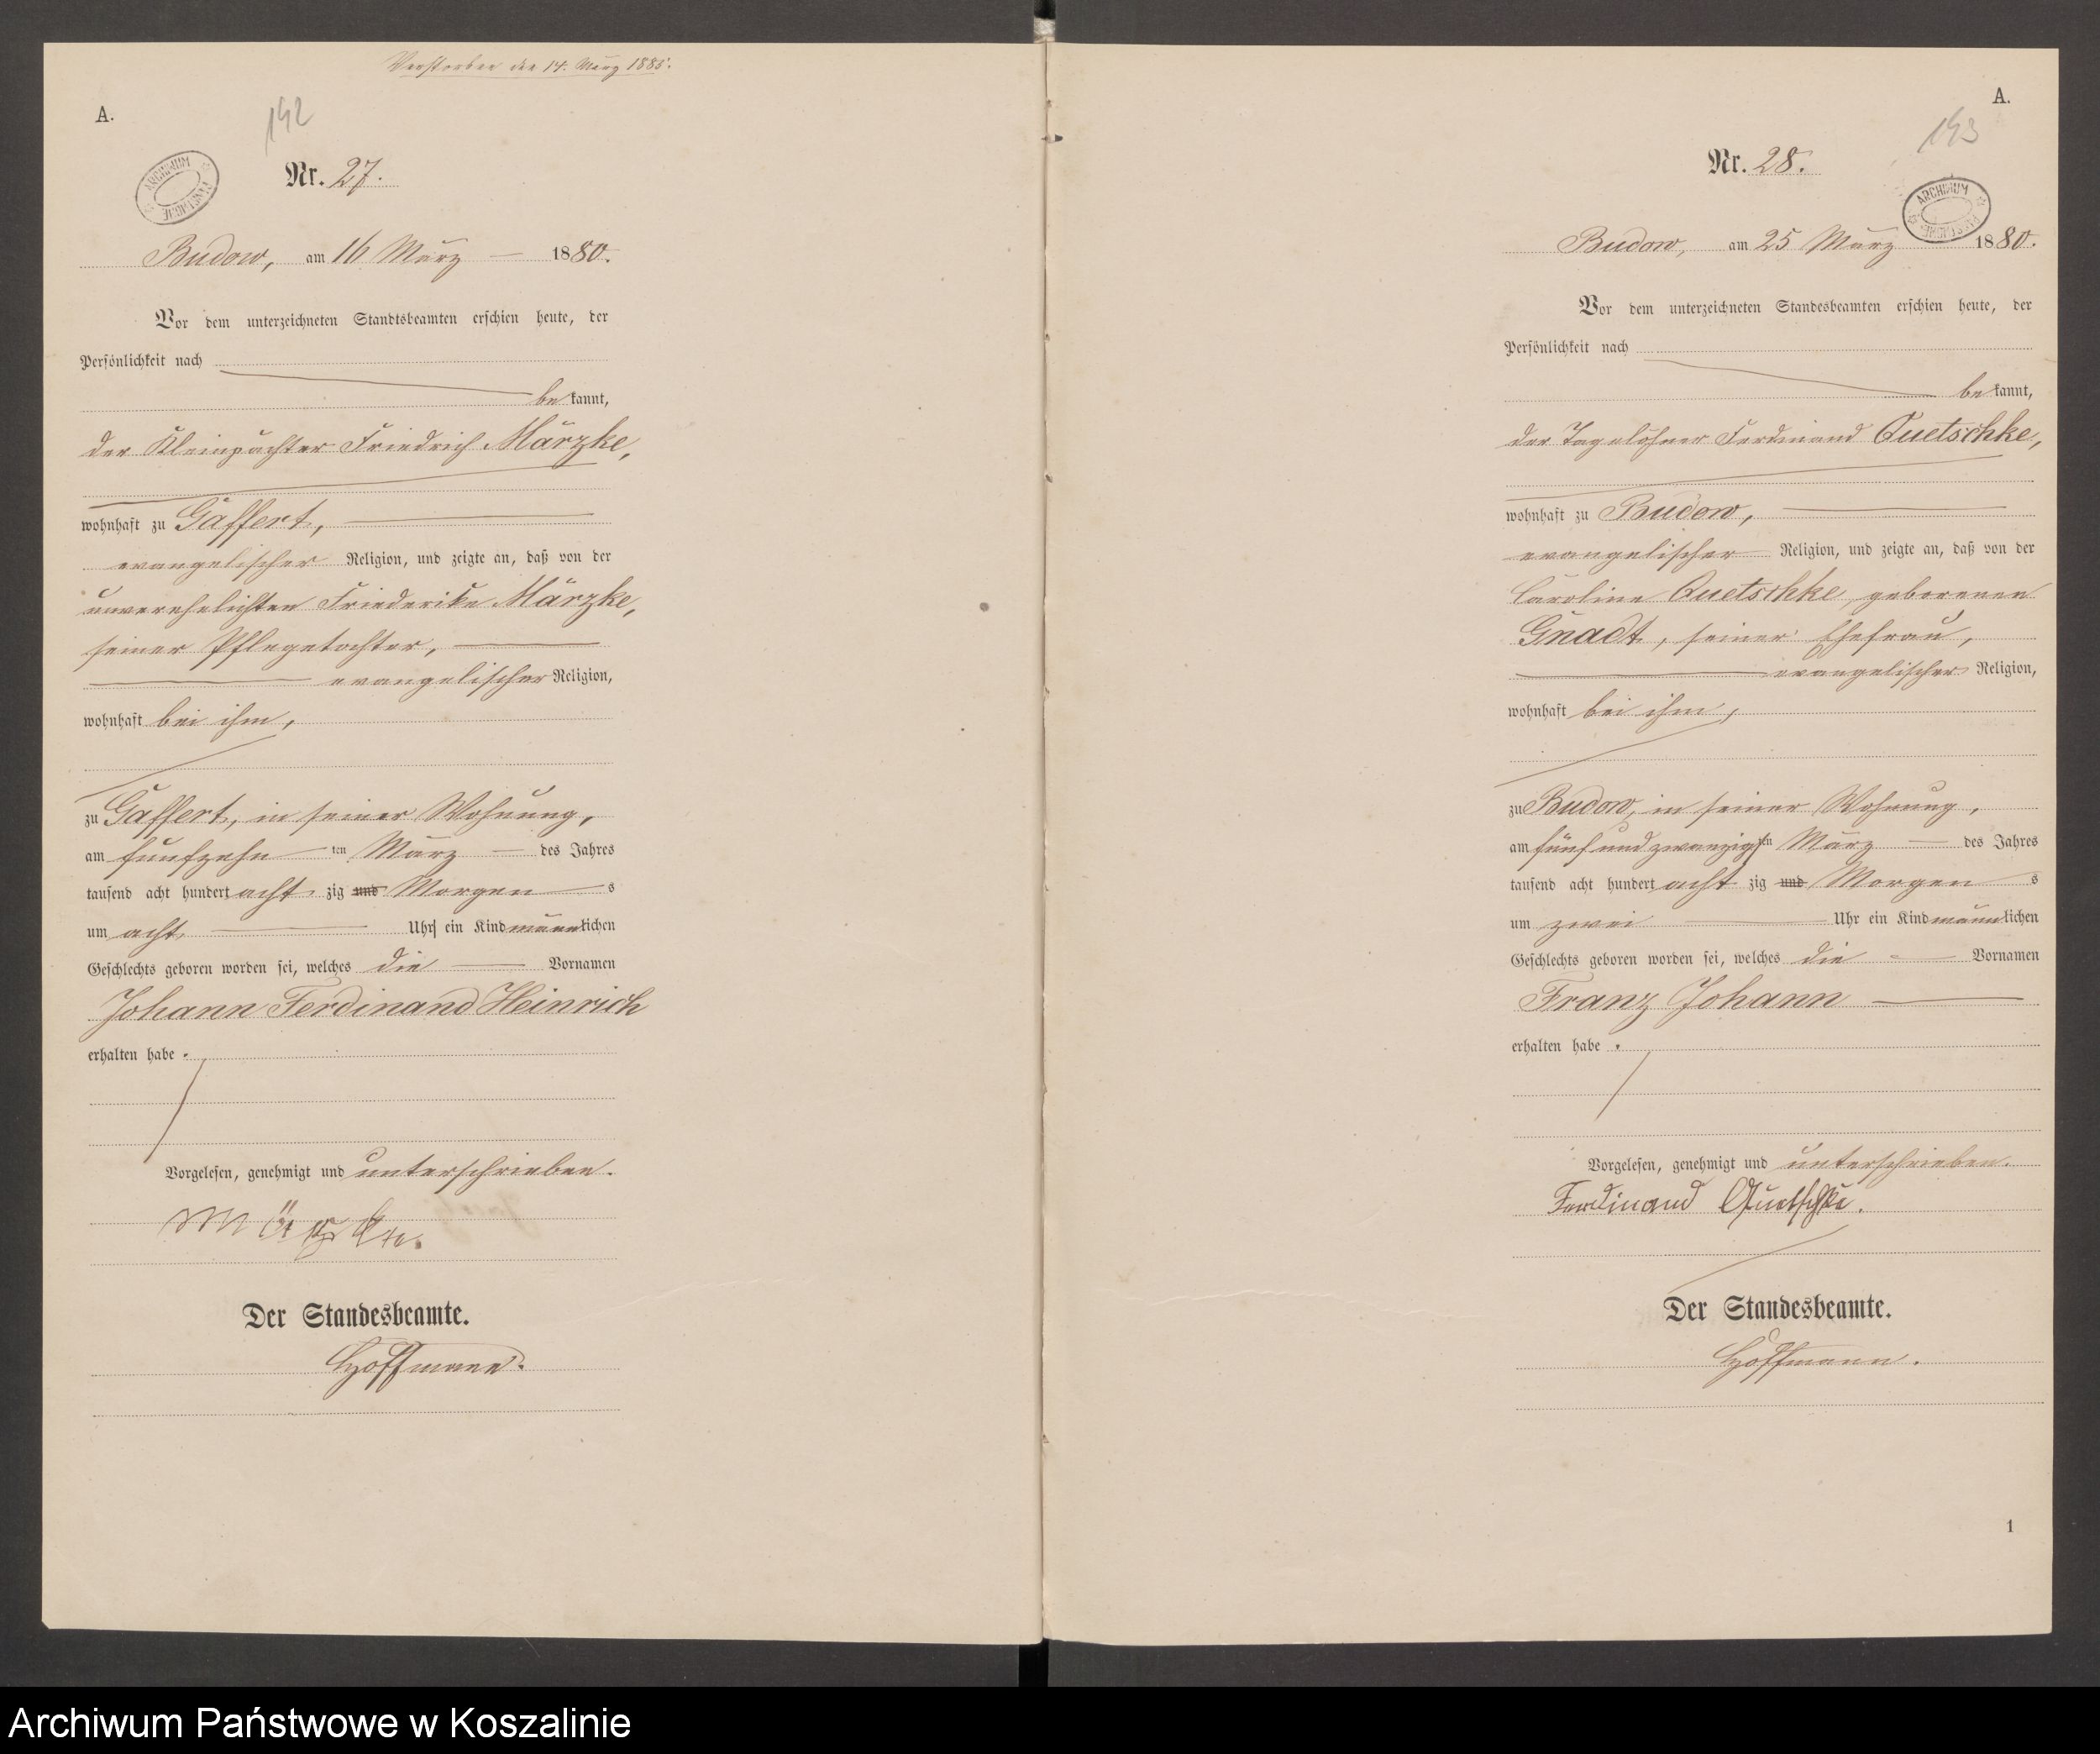 Verstorben den 14. März 1885.
A.
142
ARCHIWUM PAŃSTWOWE
Nr. 27.
Budow, am 16 März 1880.
Vor dem unterzeichneten Standtsbeamten erschien heute, der
Persönlichkeit nach
bekannt,
der Kleinpächter Friedrich Märzke,
wohnhaft zu Gaffert,
evangelischer Religion, und zeigte an, daß von der
unverehelichten Friederike Märzke,
seiner Pflegetochter,
evangelischer Religion,
wohnhaft bei ihm,
zu Gaffert, in seiner Wohnung,
am fünfzehn ten März des Jahres
tausend acht hundert acht zig und Morgen s
um acht Uhr ein Kind männlichen
Geschlechts geboren worden sei, welches die Vornamen
Johann Ferdinand Heinrich
erhalten habe.
Vorgelesen, genehmigt und unterschrieben.
Märzke.
Der Standesbeamte.
Hoffmann.
A.
143
ARCHIWUM PAŃSTWOWE
Nr. 28.
Budow, am 25 März 1880.
Vor dem unterzeichneten Standesbeamten erschien heute, der
Persönlichkeit nach
bekannt,
der Tagelöhner Ferdinand Quetschke,
wohnhaft zu Budow,
evangelischer Religion, und zeigte an, daß von der
Caroline Quetschke, geborenen
Gnadt, seiner Ehefrau,
evangelischer Religion,
wohnhaft bei ihm,
zu Budow, in seiner Wohnung,
am fünf und zwanzigsten März des Jahres
tausend acht hundert acht zig und Morgen s
um zwei Uhr ein Kind männlichen
Geschlechts geboren worden sei, welches die Vornamen
Franz Johann
erhalten habe.
Vorgelesen, genehmigt und unterschrieben.
Ferdinand Quetschke.
Der Standesbeamte.
Hoffmann.
1
Archiwum Państwowe w Koszalinie